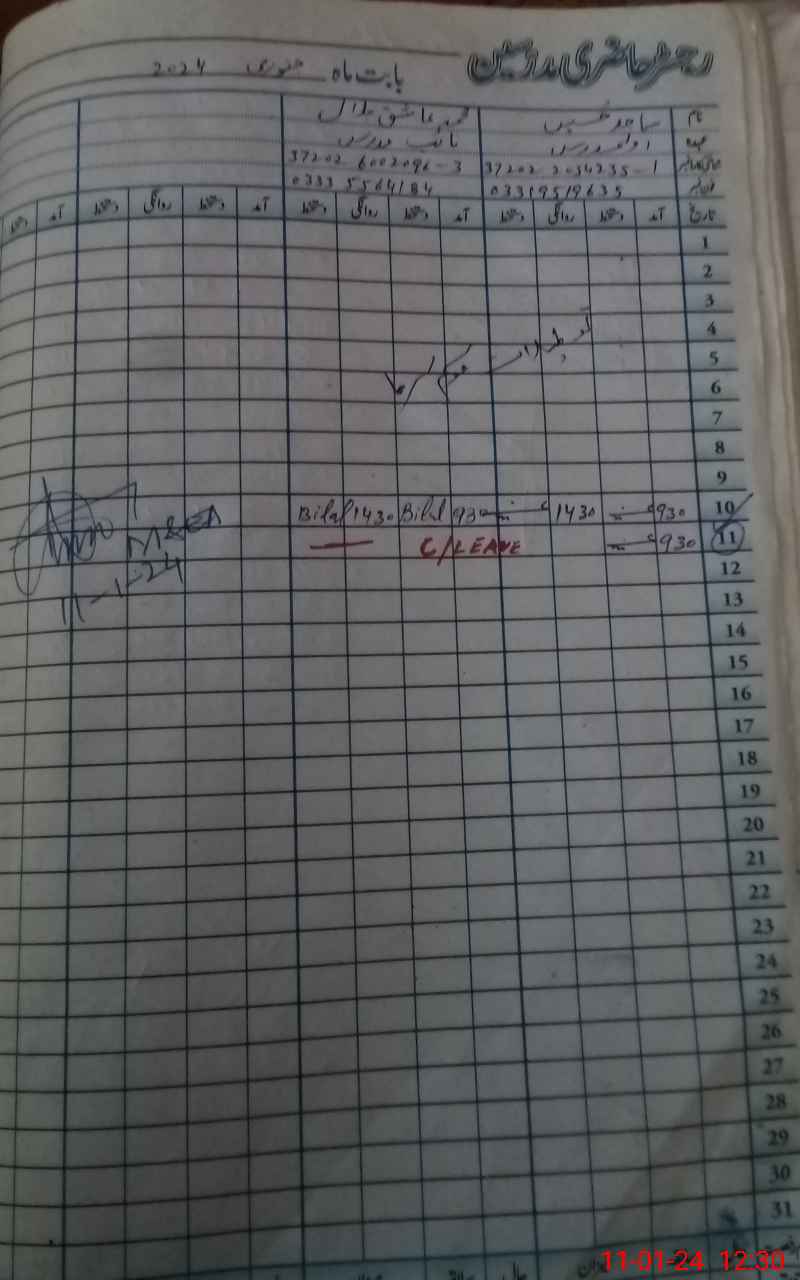 رجسٹر حاضری مدرسین
بابت ماہ جنوری 2024
نام ساجد حسین محمد عاشق بلال
عہدہ اول مدرس نائب مدرس
37202 2034235-1 37202 6002096-3
03319519635 0333 5564184
تاریخ آمد دستخط روانگی دستخط آمد دستخط روانگی دستخط آمد دستخط روانگی دستخط آمد دستخط
1
2
3
4
5
6
7
8
9
10 930 1430 930 Bilal 1430 Bilal
11 930 C/LEAVE —
M&EA
11-1-24
12
13
14
15
16
17
18
19
20
21
22
23
24
25
26
27
28
29
30
31
11-01-24 12:30